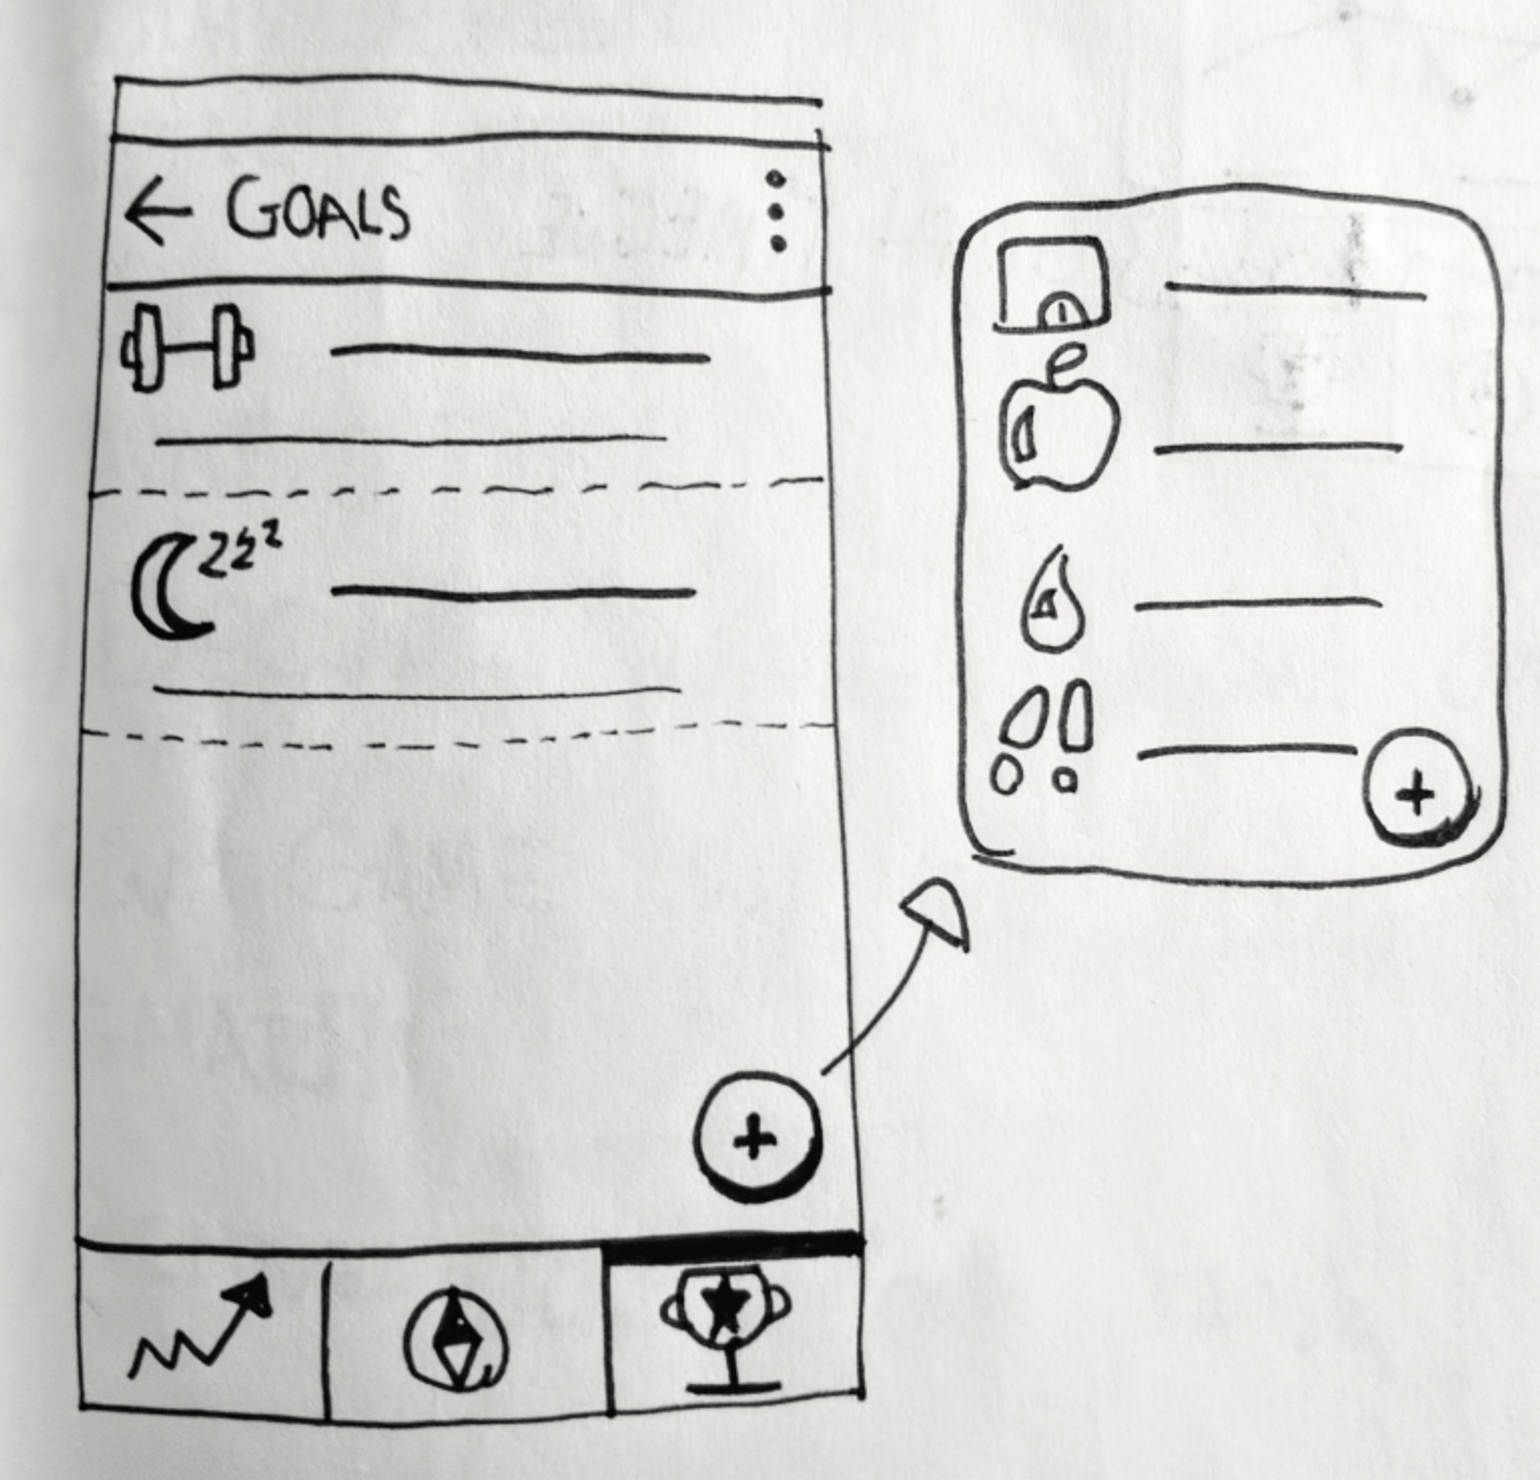 ← GOALS
zzz
+
+